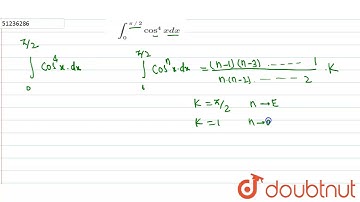 51236286
∫₀^{π/2} cos⁴ xdx
π/2 ∫₀ cos⁴x.dx π/2 ∫₀ cosⁿx.dx = (n-1)(n-3)..... 1 / n.(n-2)...... 2 .K
K = π/2 n → E
K = 1 n → O
doubtnut